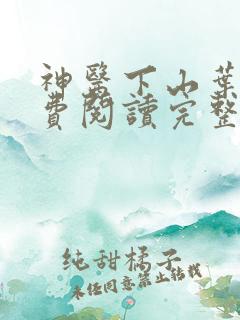 神醫下山葉
費閱讀完整
純甜橘子
未經同意禁止轉載